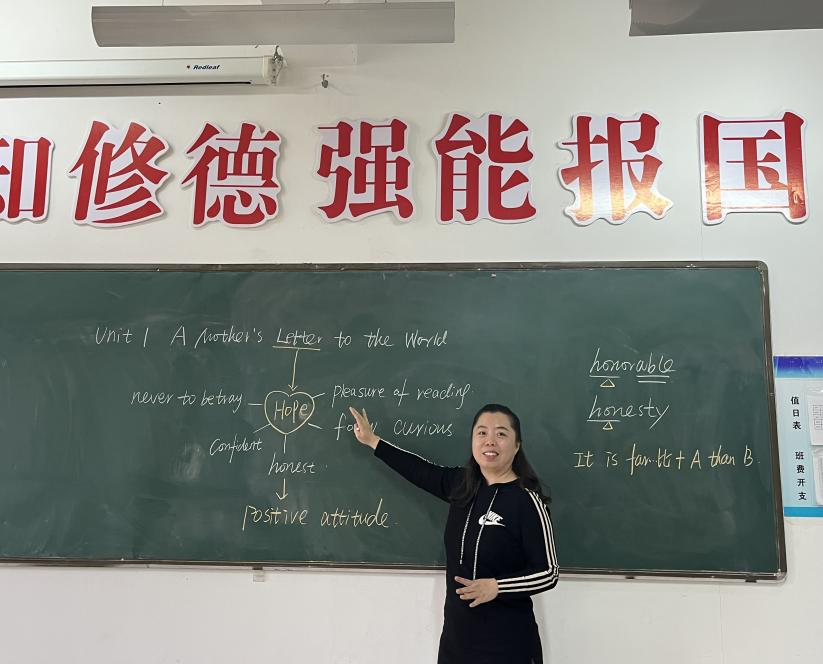 Redleaf
知修德 强能报国
Unit 1 A Mother's Letter to the World
never to betray
HOPE
pleasure of reading.
curious
confident
honest.
positive attitude.
honorable
honesty
It is far 比+ A than B.
NIKE
值日表
班费开支